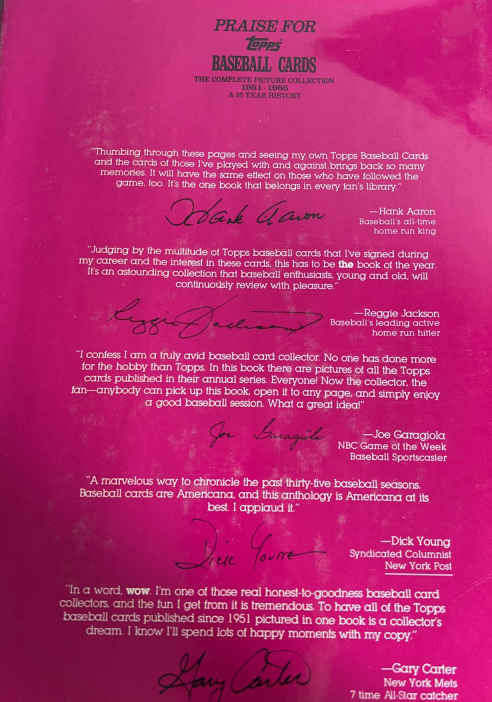 PRAISE FOR
Topps
BASEBALL CARDS
THE COMPLETE PICTURE COLLECTION
1951 - 1985
A 35 YEAR HISTORY
"Thumbing through these pages and seeing my own Topps Baseball Cards
and the cards of those I've played with and against brings back so many
memories. It will have the same effect on those who have followed the
game, too. It's the one book that belongs in every fan's library."
Hank Aaron
—Hank Aaron
Baseball's all-time
home run king
"Judging by the multitude of Topps baseball cards that I've signed during
my career and the interest in these cards, this has to be the book of the year.
It's an astounding collection that baseball enthusiasts, young and old, will
continuously review with pleasure."
Reggie Jackson
—Reggie Jackson
Baseball's leading active
home run hitter
"I confess I am a truly avid baseball card collector. No one has done more
for the hobby than Topps. In this book there are pictures of all the Topps
cards published in their annual series. Everyone! Now the collector, the
fan—anybody can pick up this book, open it to any page, and simply enjoy
a good baseball session. What a great idea!"
Joe Garagiola
—Joe Garagiola
NBC Game of the Week
Baseball Sportscaster
"A marvelous way to chronicle the past thirty-five baseball seasons.
Baseball cards are Americana, and this anthology is Americana at its
best. I applaud it."
Dick Young
—Dick Young
Syndicated Columnist
New York Post
"In a word, wow. I'm one of those real honest-to-goodness baseball card
collectors, and the fun I get from it is tremendous. To have all of the Topps
baseball cards published since 1951 pictured in one book is a collector's
dream. I know I'll spend lots of happy moments with my copy."
Gary Carter
—Gary Carter
New York Mets
7 time All-Star catcher